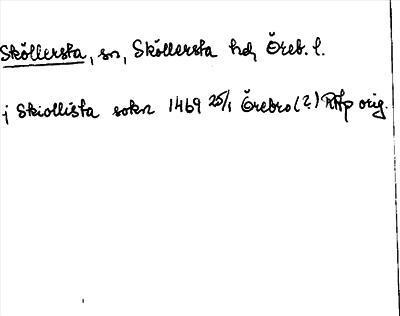 Sköllersta, sn, Sköllersta hd, Öreb. l.
i Skiollista sokn 1469 25/1 Örebro (?) RAp orig.